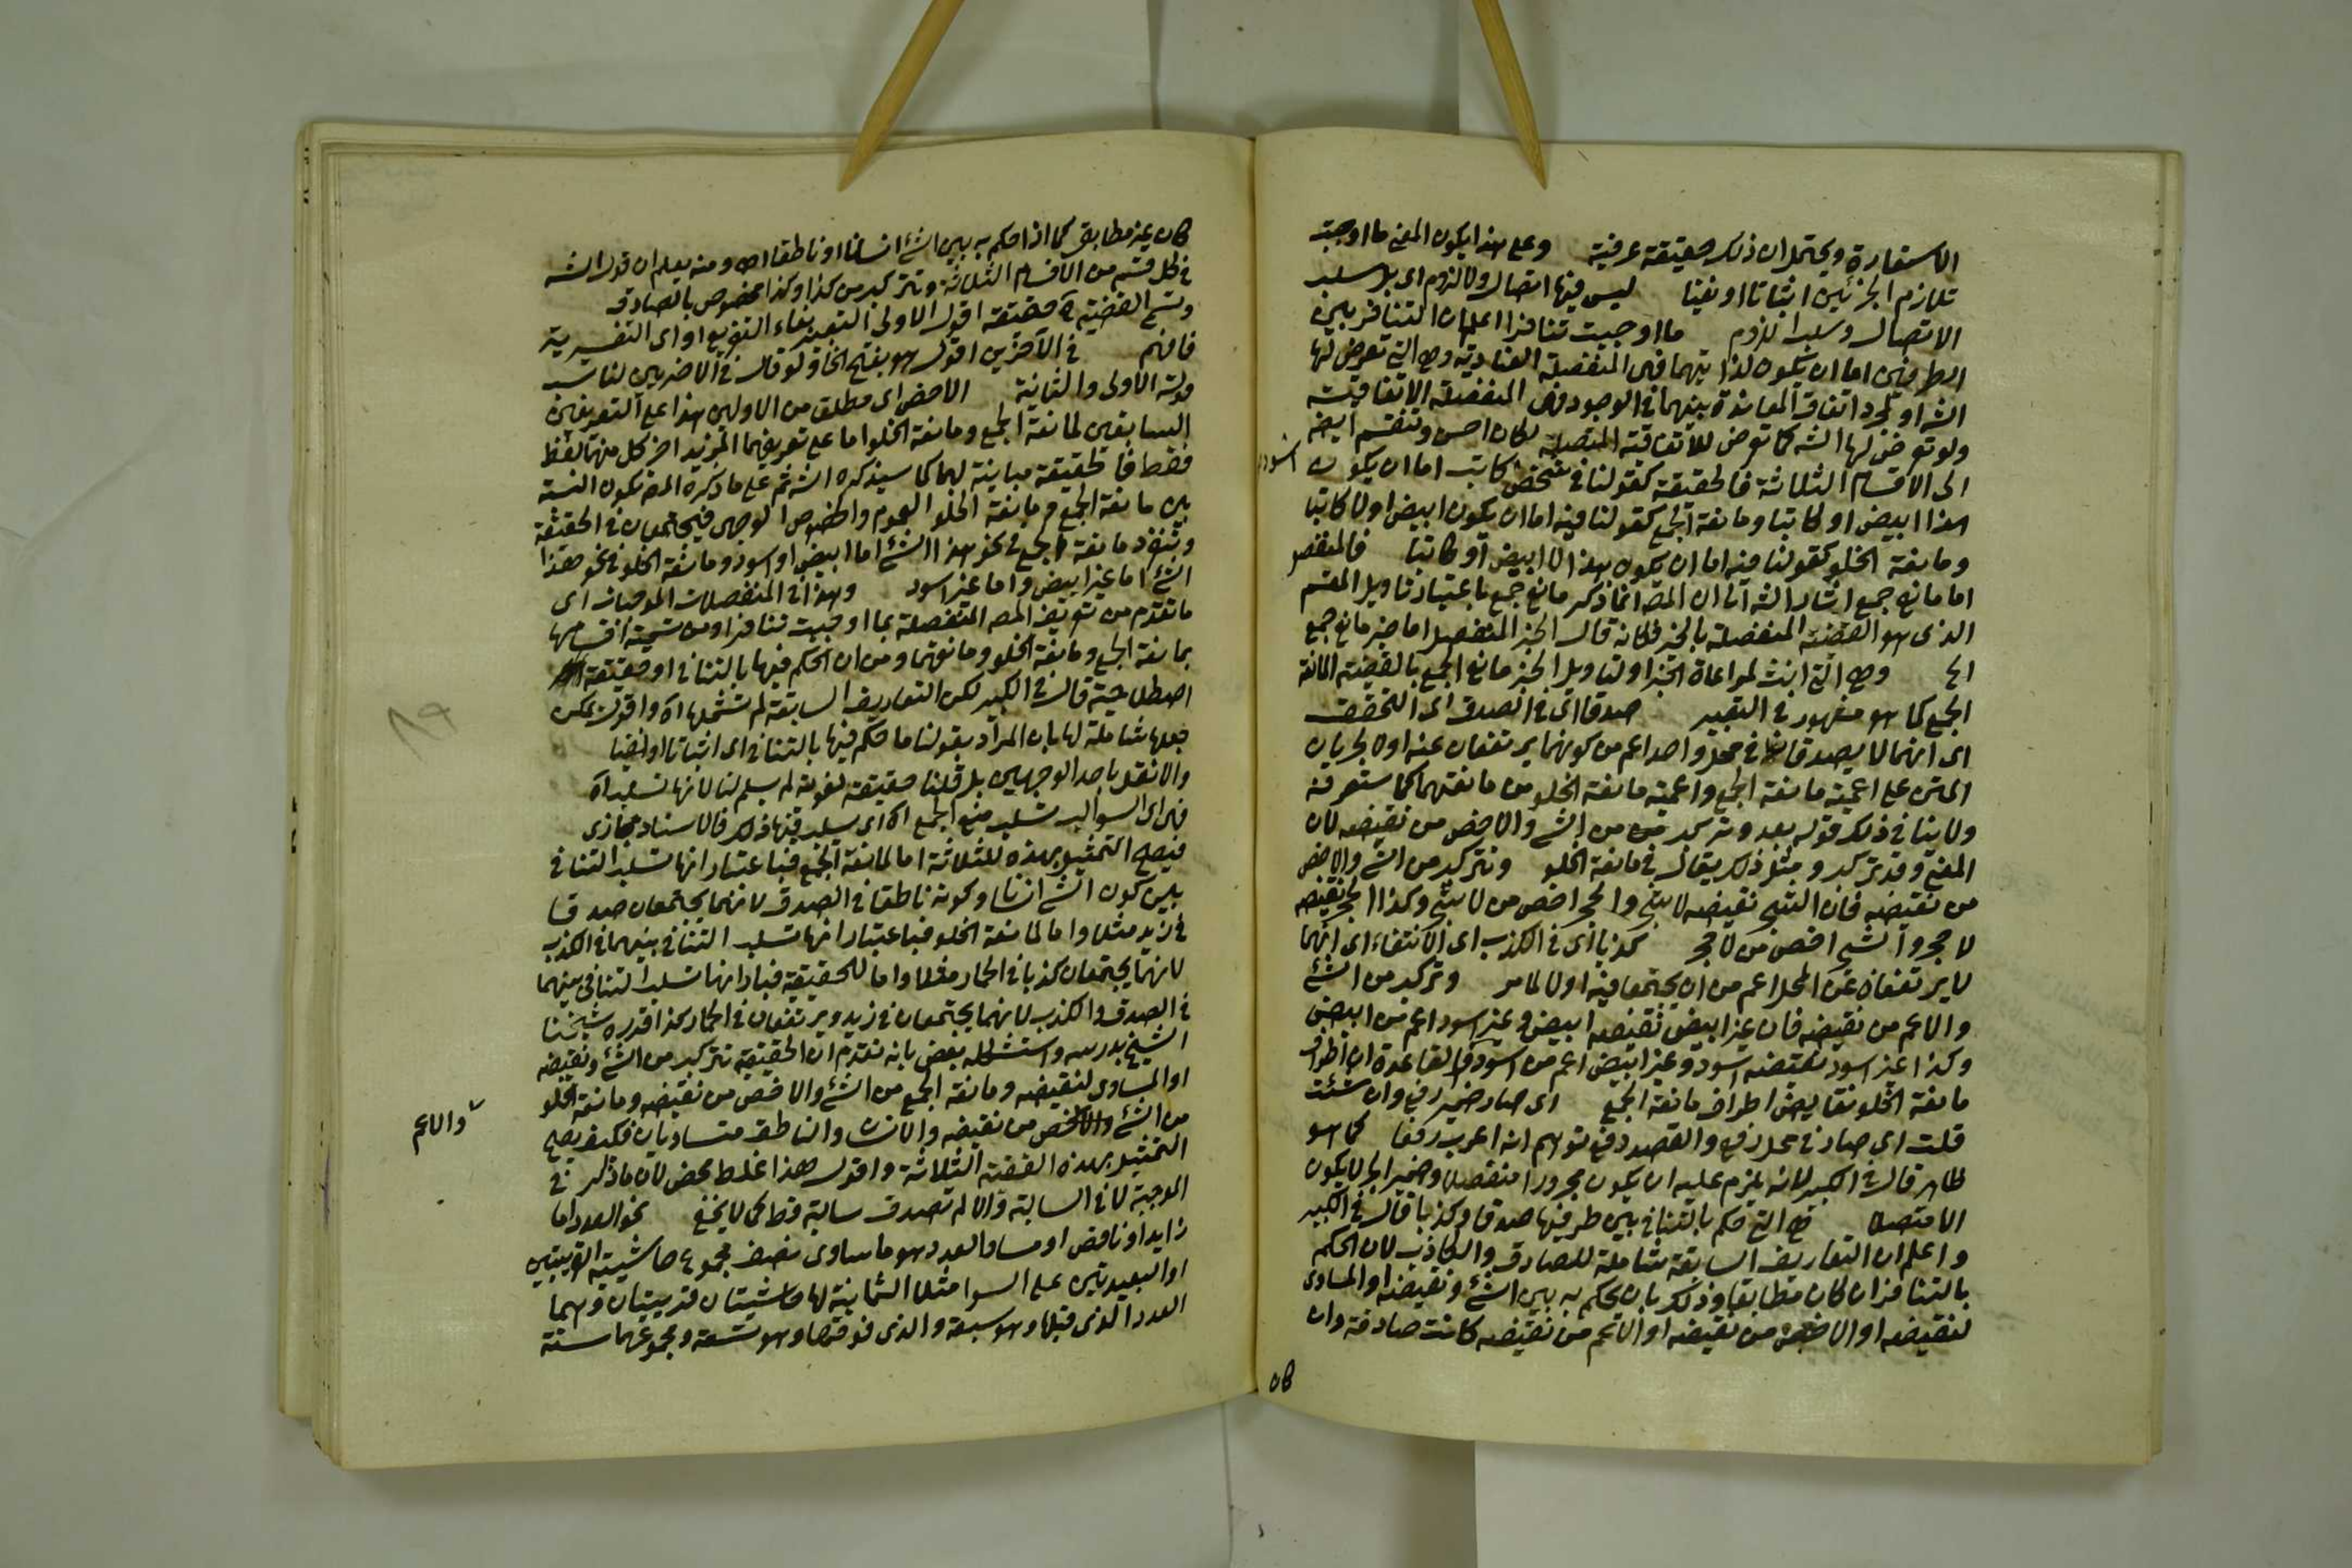 الاستعارة ويحتمل ان ذلك حقيقة عرفية وعلى هذا يكون المعنى ما اوجبت
تلازم الجزئين اثباتا او نفيا ليس فيها اتصال ولا لزوم اى بل سلب
الاتصال وسلب اللزوم ما اوجبت تنافرا اعلم ان التنافر بين
الطرفين اما ان يكون لذاتيهما فهى المنفصلة العنادية وهى التى تعرض لها
الشه او لمجرد اتفاق المعاندة بينهما فى الوجود فهى المنفصلة الاتفاقية
ولو تعرض لها الشه كما تعرض للاتفاقية المتصلة لكان احسن وتنقسم ايضه
الى الاقسام الثلاثة فالحقيقة كقولنا فى شخص كاتب اما ان يكون
اسود
هذا ابيض او كاتبا ومانعة الجمع كقولنا فيه اما ان يكون ابيض او لا كاتبا
ومانعة الخلو كقولنا فيه اما ان يكون هذا لا ابيض او كاتبا فالمنفصل
اما مانع جمع اشار الشه الى ان المصه انما ذكر مانع جمع باعتبار تاويل المقسم
الذى هو القضية المنفصلة بالجز فكانه قال الجز المنفصل اما جز مانع جمع
الخ وهى التى انث لمراعاة الخبر او لتاويل الجز مانع الجمع بالقضية المانعة
الجمع كما هو مشهور فى التعبير صدقا اى فى الصدق اى التحقق
اى انهما لا يصدقان فى محل واحد اعم من كونهما يرتفعان عنه او لا لجريان
المتن على اعمية مانعة الجمع واعمية مانعة الخلو من مانعتهما كما ستعرفه
ولا ينافى ذلك قوله بعد وتتركب من الشئ والاخص من نقيضه لان
المعنى وقد تتركب ومثل ذلك يقال فى مانعة الخلو وتتركب من الشئ والاخص
من نقيضه فان الشجر نقيضه لا شجر والحجر اخص من لا شجر وكذا الحجر نقيضه
لا حجر والشجر اخص من لا حجر كذبا اى فى الكذب اى الانتفاء اى انهما
لا يرتفعان عن المحل اعم من ان يجتمعا فيه او لا لما مر وتركب من الشئ
والاعم من نقيضه فان غير ابيض نقيضه ابيض وغير اسود اعم من ابيض
وكذا غير اسود نقيضه اسود وغير ابيض اعم من اسود فالقاعدة ان اطراف
مانعة الخلو نقايض اطراف مانعة الجمع اى صار ضمير رفع وان شئت
قلت اى صار فى محل رفع والقصد دفع توهم انه اعرب رفعا كما هو
ظاهر قال فى الكبير لانه يلزم عليه ان يكون مجرورا منفصلا وضمير الجر لا يكون
الا متصلا فهى التى حكم بالتنافى بين طرفيها صدقا وكذبا قال فى الكبير
واعلم ان التعاريف السابقة شاملة للصادق والكاذب لان الحكم
بالتنافر ان كان مطابقا وذلك بان يحكم به بين الشئ ونقيضه او المساوى
لنقيضه او الاخص من نقيضه او الاعم من نقيضه كانت صادقة وان
٥٨
كان غير مطابق كما اذا حكم به بين الشئ انسانا او ناطقا اه ومنه يعلم ان قول الشه
فى كل قسم من الاقسام الثلاثة وتتركب من كذا وكذا مخصوص بالصادق
وتسمى القضية حقيقة اقول الاولى التعبير بفاء التفريع او اى التفسيرية
فافهم فى الآخرين اقول هو بفتح الخاء ولو قال فى الاخريين لناسب
قوله الاولى والثانية الاخص اى مطلق من الاوليين هذا على التعريفين
السابقين لمانعة الجمع ومانعة الخلو اما على تعريفهما المزيد اخر كل منهما لفظ
فقط فالحقيقة مباينة لهما كما سيذكره الشه ثم على ما ذكره المصه تكون النسبة
بين مانعة الجمع ومانعة الخلو العموم والخصوص الوجهى فيجتمعان فى الحقيقة
وتنفرد مانعة الجمع فى نحو هذا الشئ اما ابيض او اسود ومانعة الخلو فى نحو هذا
الشئ اما غير ابيض واما غير اسود وهذا فى المنفصلات الموجبات اى
ما تقدم من تعريف المصه المنفصلة بما اوجبت تنافرا ومن تسمية اقسامها
بمانعة الجمع ومانعة الخلو ومانعتهما ومن ان الحكم فيها بالتنافى او حقيقة
اصطلاحية قال فى الكبير لكن التعاريف السابقة لم تشملها اه واقول يمكن
جعلها شاملة لها بان المراد بقولنا ما حكم فيها بالتنافى اى اثباتا او نفيا
والا نقل باحد الوجهين بل قلنا حقيقة لغوية لم يسلم لنا لانها تسلب اه
فهى اى السوالب تسلب منع الجمع اه اى سلب فيها ذلك فالاسناد مجازى
فيصح التمثيل بهذه للثلاثة اما لمانعة الجمع فباعتبار انها تسلب التنافى
بين كون الشئ انسانا وكونه ناطقا فى الصدق لانهما يجتمعان صدقا
فى زيد مثلا واما لمانعة الخلو فباعتبار انها تسلب التنافى بينهما فى الكذب
لانهما يجتمعان كذبا فى الحمار مثلا واما للحقيقية فباعتبار انها تسلب التنافى بينهما
فى الصدق والكذب لانهما يجتمعان فى زيد ويرتفعان فى الحمار كذا قرره شيخنا
الشيخ بدرسه واستشكله بعض بانه تقدم ان الحقيقية تتركب من الشئ ونقيضه
او المساوى لنقيضه ومانعة الجمع من الشئ والاخص من نقيضه ومانعة الخلو
من الشئ والاخص من نقيضه والانسان والناطق متساويان فكيف يصح
والاعم
التمثيل بهذه القضية للثلاثة واقول هذا غلط محض لان ما ذكر فى
الموجبة لا فى السالبة والا لم تصدق سالبة قط كما لا يخفى نحو العدد اما
زايد او ناقص او مساو العدد هو ما ساوى نصف مجموع حاشيتيه القريبتين
او البعيدتين على السوا مثلا الثمانية لها حاشيتان قريبتان وهما
العدد الذى قبلها وهو سبعة والذى فوقها وهو تسعة ومجموعهما ستة